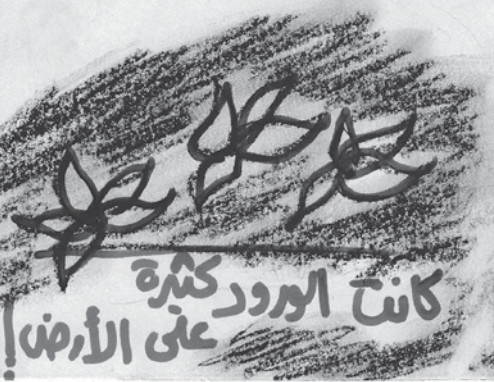 كانت الورود كثيرة
على الأرض!